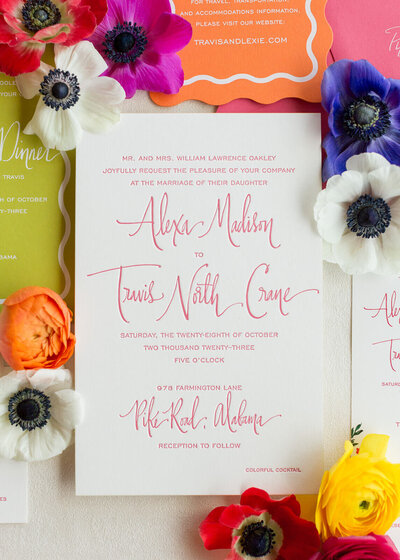 FOR TRAVEL, TRANSPORTATION,
AND ACCOMMODATIONS INFORMATION,
PLEASE VISIT OUR WEBSITE.
TRAVISANDLEXIE.COM
Dinner
TRAVIS
OF OCTOBER
TY-THREE
BAMA
MR. AND MRS. WILLIAM LAWRENCE OAKLEY
JOYFULLY REQUEST THE PLEASURE OF YOUR COMPANY
AT THE MARRIAGE OF THEIR DAUGHTER
Alexa Madison
TO
Travis North Crane
SATURDAY, THE TWENTY-EIGHTH OF OCTOBER
TWO THOUSAND TWENTY-THREE
FIVE O'CLOCK
978 FARMINGTON LANE
Pike Road, Alabama
RECEPTION TO FOLLOW
COLORFUL COCKTAIL